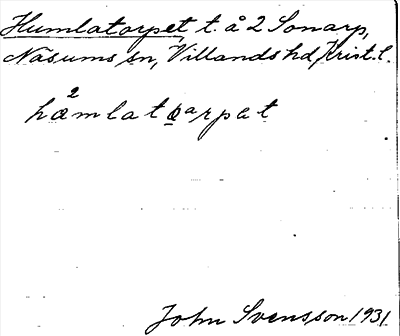 Humlatorpet t. å 2 Sonarp,
Näsums sn, Villands hd, Krist. l.
2
hæmlatoarpat
John Svensson 1931